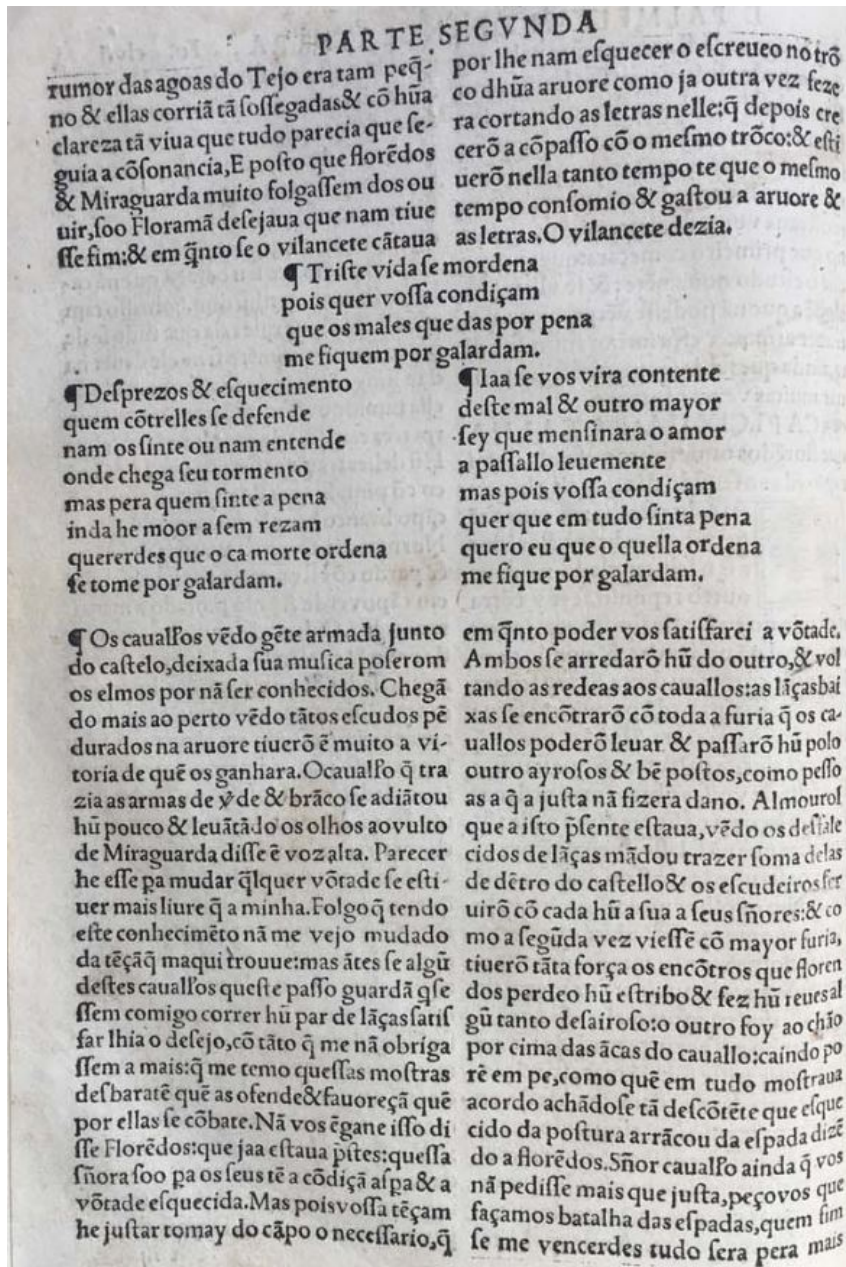 PARTE SEGVNDA
rumor das agoas do Tejo era tam peq̃-
no & ellas corriã tã ſoſſegadas & cõ hũa
clareza tã viua que tudo parecia que ſe-
guia a cõſonancia, E poſto que florẽdos
& Miraguarda muito folgaſſem dos ou
uir, ſoo Floramã deſejaua que nam tiue
ſſe fim: & em q̃nto ſe o vilancete cãtaua
por lhe nam eſquecer o eſcreueo no trõ
co dhũa aruore como ja outra vez feze
ra cortando as letras nelle: q̃ depois cre
cerõ a cõpaſſo cõ o meſmo trõco: & eſti
uerõ nella tanto tempo te que o meſmo
tempo conſomio & gaſtou a aruore &
as letras. O vilancete dezia.
¶ Triſte vida ſe mordena
pois quer voſſa condiçam
que os males que das por pena
me fiquem por galardam.
¶ Deſprezos & eſquecimento
quem cõtrelles ſe defende
nam os ſinte ou nam entende
onde chega ſeu tormento
mas pera quem ſinte a pena
inda he moor a ſem rezam
quererdes que o ca morte ordena
ſe tome por galardam.
¶ Iaa ſe vos vira contente
deſte mal & outro mayor
ſey que menſinara o amor
a paſſallo leuemente
mas pois voſſa condiçam
quer que em tudo ſinta pena
quero eu que o quella ordena
me fique por galardam.
¶ Os caualłos vẽdo gẽte armada junto
do caſtelo, deixada ſua muſica poſerom
os elmos por nã ſer conhecidos. Chegã
do mais ao perto vẽdo tãtos eſcudos pẽ
durados na aruore tiuerõ ẽ muito a vi-
toria de quẽ os ganhara. O caualło q̃ tra
zia as armas de ṽde & brãco ſe adiãtou
hũ pouco & leuãtãdo os olhos ao vulto
de Miraguarda diſſe ẽ voz alta. Parecer
he eſſe pa mudar q̃lquer võtade ſe eſti-
uer mais liure q̃ a minha. Folgo q̃ tendo
eſte conhecimẽto nã me vejo mudado
da tẽçã q̃ maqui trouue: mas ãtes ſe algũ
deſtes caualłos queſte paſſo guardã q̃ſe
ſſem comigo correr hũ par de lãças ſatiſ
far lhia o deſejo, cõ tãto q̃ me nã obriga
ſſem a mais: q̃ me temo queſſas moſtras
deſbaratẽ quẽ as ofende & fauoreçã quẽ
por ellas ſe cõbate. Nã vos ẽgane iſſo di
ſſe Florẽdos: que jaa eſtaua p̃ſtes: queſſa
ſñora ſoo pa os ſeus tẽ a cõdiçã aſpa & a
võtade eſquecida. Mas pois voſſa tẽçam
he juſtar tomay do cãpo o neceſſario, q̃
em q̃nto poder vos ſatiſfarei a võtade.
Ambos ſe arredarõ hũ do outro, & vol
tando as redeas aos cauallos: as lãças bai
xas ſe encõtrarõ cõ toda a furia q̃ os ca-
uallos poderõ leuar & paſſarõ hũ polo
outro ayroſos & bẽ poſtos, como peſſo
as a q̃ a juſta nã fizera dano. Almourol
que a iſto p̃ſente eſtaua, vẽdo os deſfale
cidos de lãças mãdou trazer ſoma delas
de dẽtro do caſtello & os eſcudeiros ſer
uirõ cõ cada hũ a ſua a ſeus ſñores: & co
mo a ſegũda vez vieſſẽ cõ mayor furia,
tiuerõ tãta força os encõtros que floren
dos perdeo hũ eſtribo & fez hũ reues al
gũ tanto deſairoſo: o outro foy ao chão
por cima das ãcas do cauallo: caindo po
rẽ em pe, como quẽ em tudo moſtraua
acordo achãdoſe tã deſcõtẽte que eſque
cido da poſtura arrãcou da eſpada dizẽ
do a florẽdos. Sñor caualło ainda q̃ vos
nã pediſſe mais que juſta, peço vos que
façamos batalha das eſpadas, quem ſim
ſe me vencerdes tudo ſera pera mais